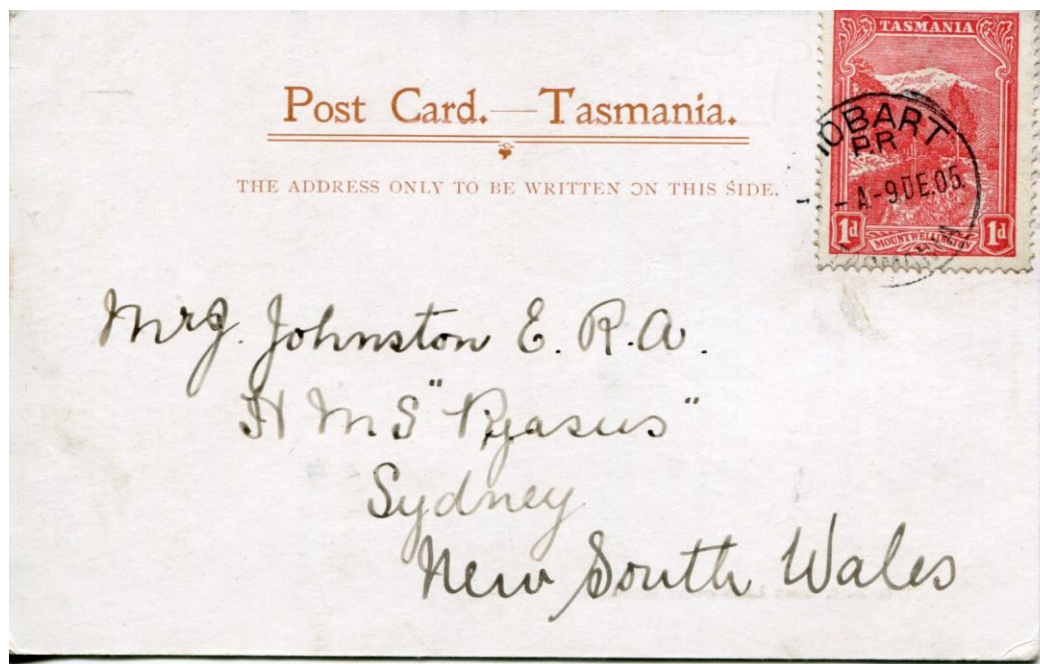 TASMANIA
Post Card.—Tasmania.
THE ADDRESS ONLY TO BE WRITTEN ON THIS SIDE.
HOBART
P.R
A-9 DE.05
1d MOUNT WELLINGTON 1d
Johnston E. R. A.
H M S "Pegasus"
Sydney
New South Wales